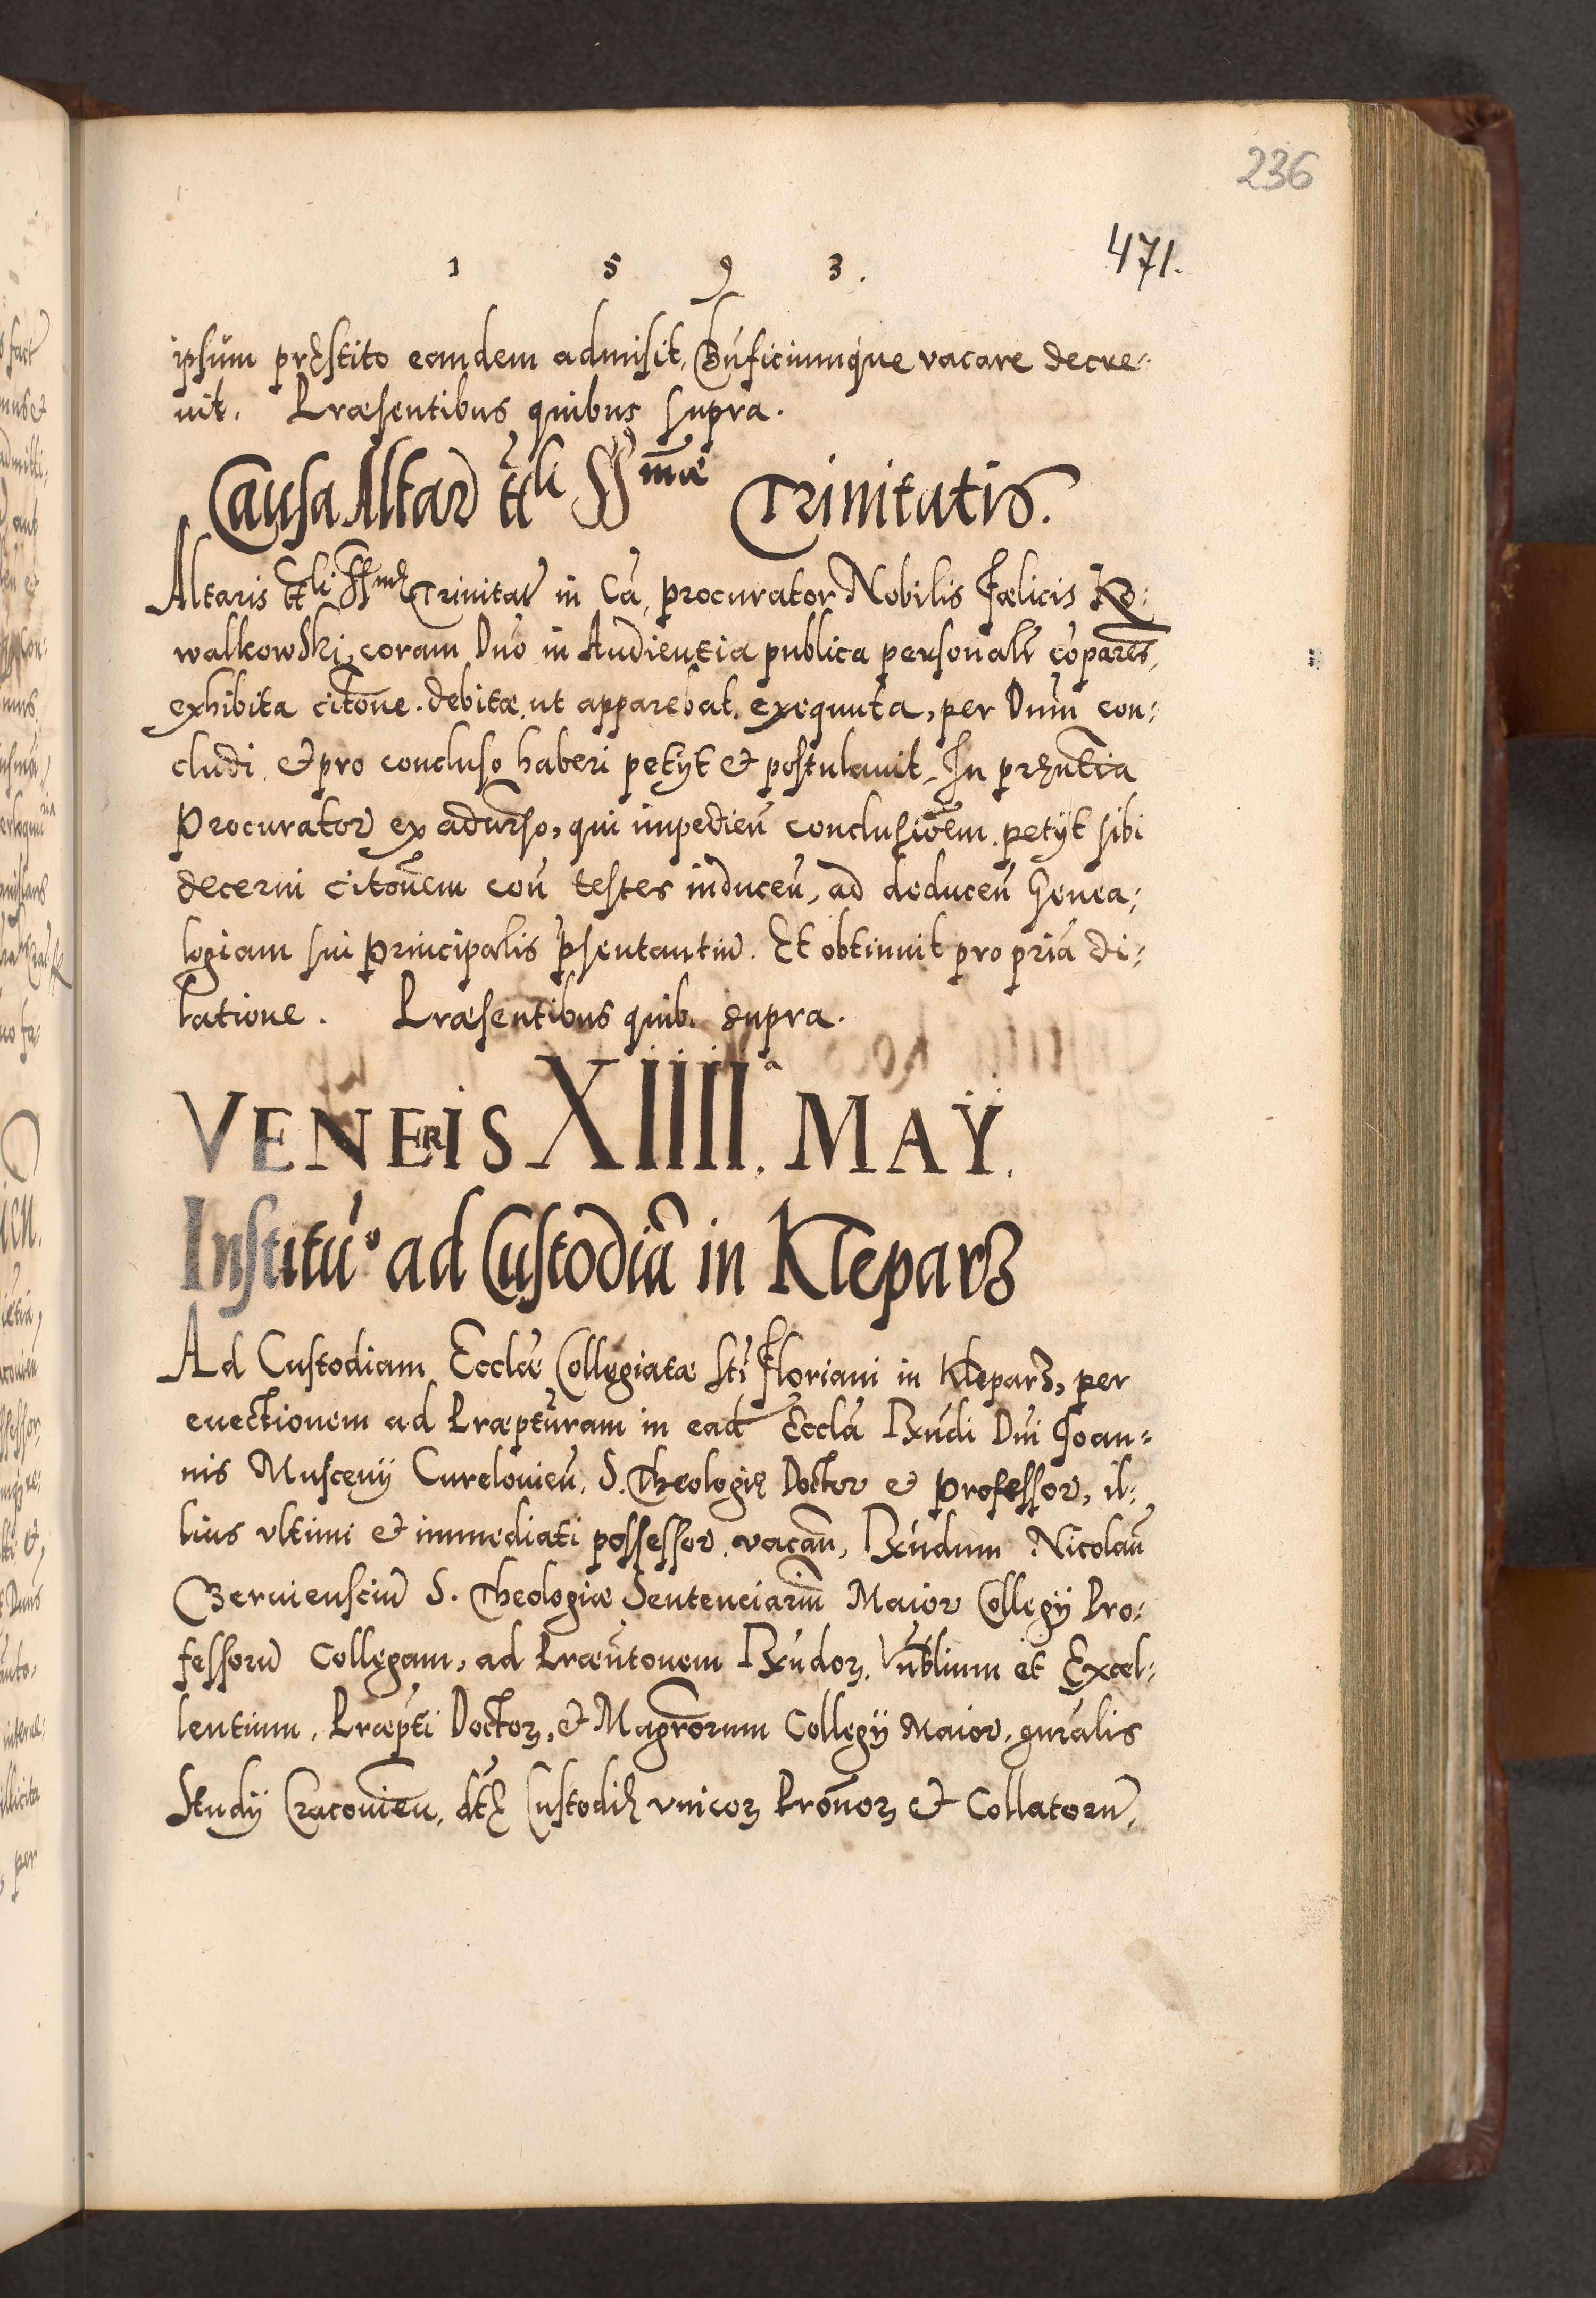 236
471.
1 5 9 3.
ipsum pręstito eandem admisit, Bnficiumque vacare decre-
uit. Præsentibus quibus supra.
Causa Altar ttli SSmæ Trinitatis.
Altaris ttli SSmę Trinitat in Ca, procurator Nobilis Fælicis Ro-
walkowski, coram Dno in Audientia publica personalr coparens,
exhibita citone. debitæ ut apparebat. exequuta, per Dnum con-
cludi et pro concluso haberi petijt et postulauit. In pręntia
Procurator ex aduerso, qui impedien conclusioem. petijt sibi
decerni citonem con testes inducen, ad deducen Genea-
logiam sui Principalis psentantiu. Et obtinuit pro pria di-
latione. Præsentibus quib. supra.
VENERIS XIIIIa. MAY.
Institu° ad Custodiã in Kleparz
Ad Custodiam Ecclæ Collegiatæ sti Floriani in Kleparz, per
euectionem ad Præpturam in ead Eccla Rndi Dni Joan-
nis Muscenij Curelouien, S. Theologię Doctor et Professor, il-
lius vltimi et immediati possessor. vacan, Rndum Nicolau
Czerniensciu S. Theologiæ Sentenciariũ Maior Collegij Pro-
fessoru Collegam, ad Præntonem Rndoꝝ. Vnblium et Excel-
lentium. Præpti Doctoꝝ, et Magrorum Collegij Maior. gnralis
Study Cracouien, dtę Custodię vnicoꝝ Pronoꝝ et Collatoru,